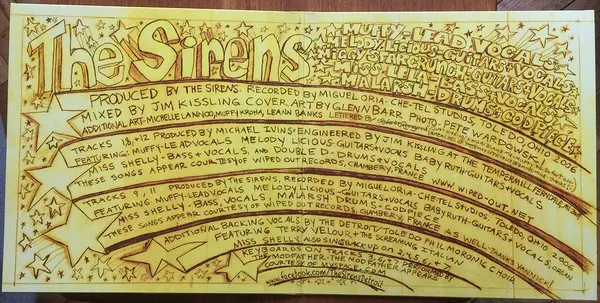 The Sirens
MUFFY-LEAD VOCALS
MELODY LICIOUS-GUITARS+VOCALS
ICCY STARCRUNCH-GUITAR+VOCALS
MISS LELA-BASS+VOCALS
MALARSH-DRUMS+CODPIECE
PRODUCED BY THE SIRENS. RECORDED BY MIGUEL ORIA-CHE-TEL STUDIOS, TOLEDO, OHIO-2006
MIXED BY JIM KISSLING COVER ART BY GLENN BARR PHOTO: PETE WARDOWSKI
ADDITIONAL ART-MICHELLE LANNOO, MUFFY KROHA, LEANN BANKS LETTERED BY
TRACKS 1,3,+12 PRODUCED BY MICHAEL IVINS+ENGINEERED BY JIM KISSLING AT THE TEMPERMILL, FERNDALE, MI
FEATURING: MUFFY-LEAD VOCALS MELODY LICIOUS-GUITARS+VOCALS BABY RUTH-GUITARS+VOCALS
MISS SHELLY-BASS+VOCALS, AND DOUBLE D-DRUMS+VOCALS
THESE SONGS APPEAR COURTESY OF WIPED OUT RECORDS, CHAMBERY, FRANCE WWW.WIPED-OUT.NET
TRACKS 9,+11 PRODUCED BY THE SIRENS, RECORDED BY MIGUEL ORIA-CHE-TEL STUDIOS, TOLEDO, OHIO 2006
FEATURING MUFFY-LEAD VOCALS MELODY LICIOUS-GUITARS+VOCALS BABY RUTH-GUITARS+VOCALS, ORGAN
MISS SHELLY-BASS, VOCALS, MALARSH DRUMS+CODPIECE
THESE SONGS APPEAR COURTESY OF WIPED OUT RECORDS, CHAMBERY, FRANCE AS WELL-THANKS YANNICK!
ADDITIONAL BACKING VOCALS BY THE DETROIT/TOLEDO PHILMORONIC CHOIR
FEATURING TERRY VELOUR+THE SCREAMING ITALIAN
MISS SHELLY ALSO SING BACKUP ON 2,4,5,6,+7
KEYBOARDS ON TRACKS 3,6,+7 PERFORMED BY
THE MODFATHER-THE MODFATHER APPEARS
COURTESY OF MYSPACE.COM
www.facebook.com/TheSirensDetroit